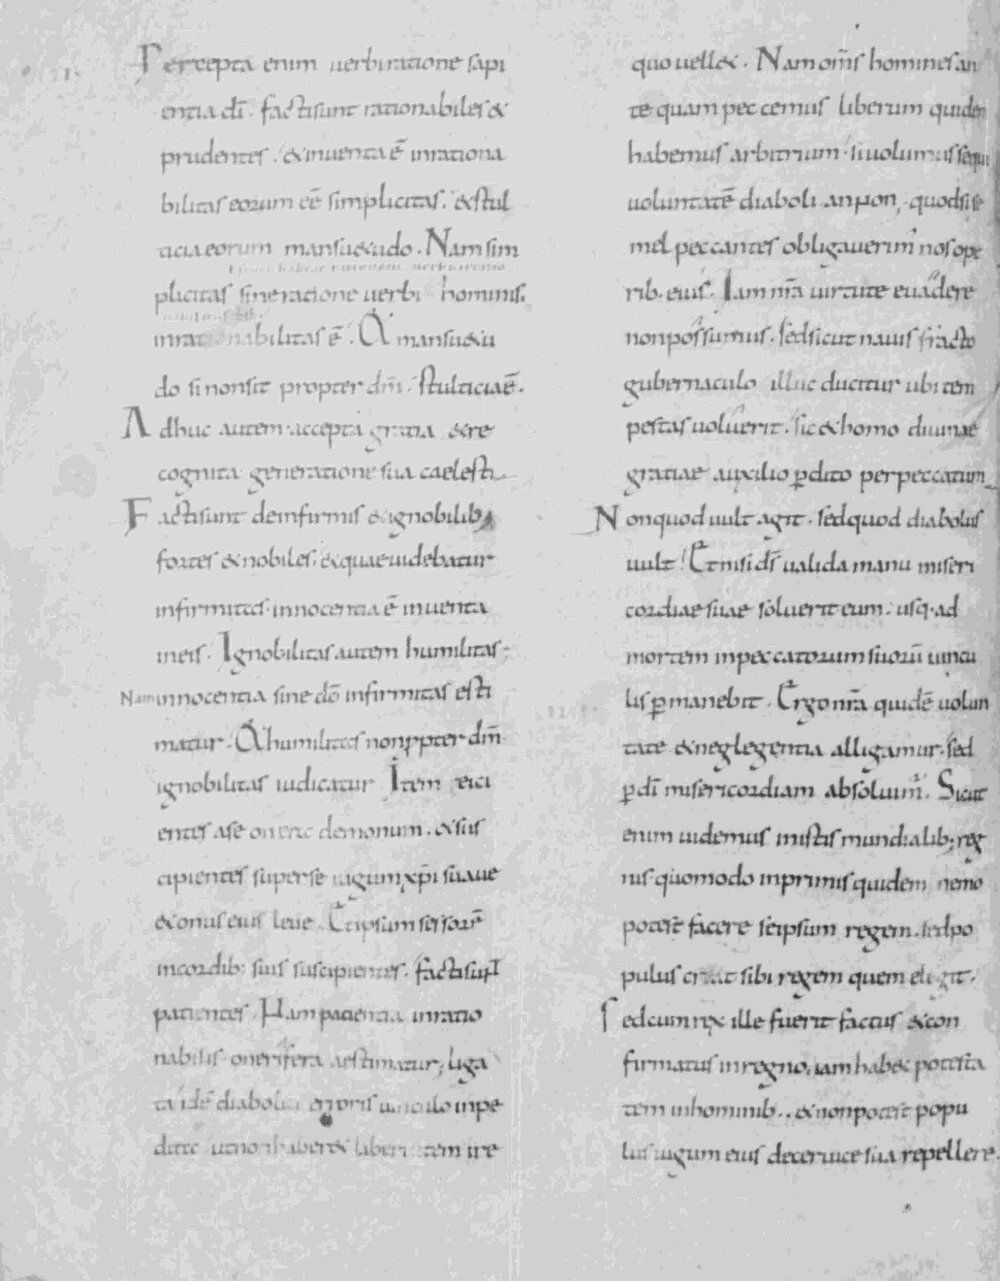 Percepta enim uerbi ratione sapi
entia dī · facti sunt rationabiles &
prudentes · & inuenta ē inrationa
bilitas eorum eē simplicitas · & stul
ticia eorum mansu&udo · Nam sim
plicitas sine ratione uerbi hominis ·
inrationabilitas ē · Q mansu&u
do si non sit propter dm̄ · stulticia ē ·
Adhuc autem accepta gratia & re
cognita generatione sua caelesti
Facti sunt de infirmis & ignobilib;
fortes & nobiles · & quae uidebatur
infirmitas · innocentia ē inuenta
in eis · Ignobilitas autem humilitas ·
Nam innocentia sine dō infirmitas esti
matur · Q humilitas non ppter dm̄
ignobilitas iudicatur Item eici
entes a se onera demonum · & sus
cipientes super se iugum xp̄i suaue
& onus eius leue · Et ipsum sessorē
in cordib; suis suscipientes · facti sunt
patientes · Nam patientia inratio
nabilis onerifera aestimatur; liga
ta idē diaboli erroris uinculo inpe
ditte · ut non haber& libertatem ire
quo uell& · Nam om̄s homines an
te quam peccemus liberum quidem
habemus arbitrium · si uolumus sequi
uoluntatē diaboli an non · quod si se
mel peccantes obligauerim' nos ope
rib · eius · Iam nr̄a uirtute euadere
non possumus · sed sicut nauis fracto
gubernaculo illuc ducitur ubi tem
pestas uoluerit · sic & homo diuinae
gratiae auxilio pdito per peccatum
Non quod uult agit · sed quod diabolus
uult ! Et nisi ds̄ ualida manu miseri
cordiae suae soluerit eum · usq · ad
mortem in peccatorum suorū uincu
lis pmanebit · Ergo nr̄a quidē uolun
tate & neglegentia alligamur · sed
p dī misericordiam absoluim' · Sicut
enim uidemus in istis mundialib; reg
nis · quomodo inprimis quidem nemo
potest facere seipsum regem · sed po
pulus creat sibi regem quem elegit ·
Sed cum rex ille fuerit factus & con
firmatus in regno, iam hab& potesta
tem in hominib · · & non potest popu
lus iugum eius de ceruice sua repellere ·